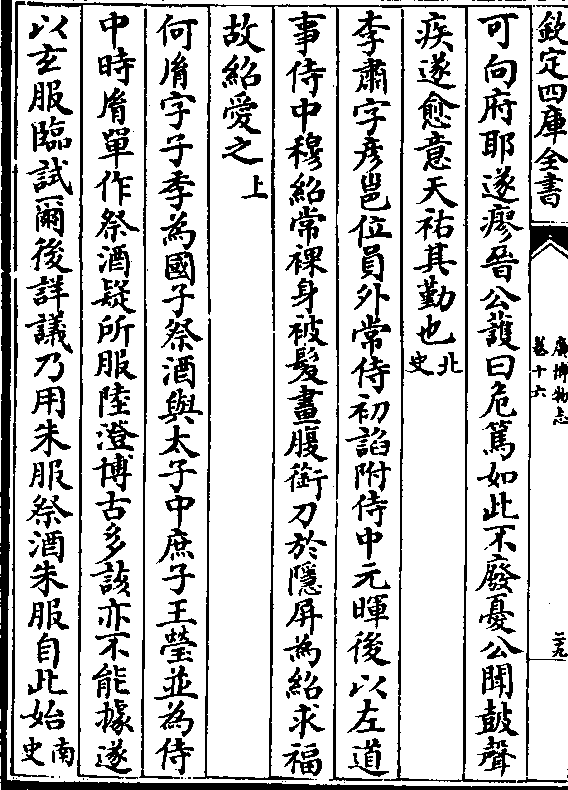 欽定四庫全書
廣博物志
卷十六
二十九
可向府耶遂瘳晉公䕶曰危篤如此不廢憂公聞鼓聲
疾遂愈意天祐其勤也北史
李肅字彦邕位員外常侍初諂附侍中元暉後以左道
事侍中穆紹常裸身被髪畫腹銜刀於隱屏為紹求福
故紹愛之上
何𦙍字子季為國子祭酒與太子中庶子王瑩並為侍
中時𦙍單作祭酒疑所服陸澄博古多該亦不能據遂
以玄服臨試爾後詳議乃用朱服祭酒朱服自此始南史